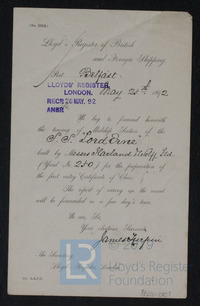 Lloyd's Register of British
and Foreign Shipping
Port Belfast
May 25th 1892
LLOYDS' REGISTER,
LONDON.
RECD 26 MAY. 92
ANSD
I beg to forward herewith
the tracing of Midship Section of the
S.S. "Lord Erne"
built by Messrs Harland Wolff Ltd
(Yard No 250) for the preparation of
the first entry Certificate of Class.
The report of carrying up the round
will be forwarded in a few day's time.
I am, Sir,
Your obedient Servant,
James Turpin
The Secretary
Lloyd's Register, London
Lloyd's Register
Foundation
HERITAGE